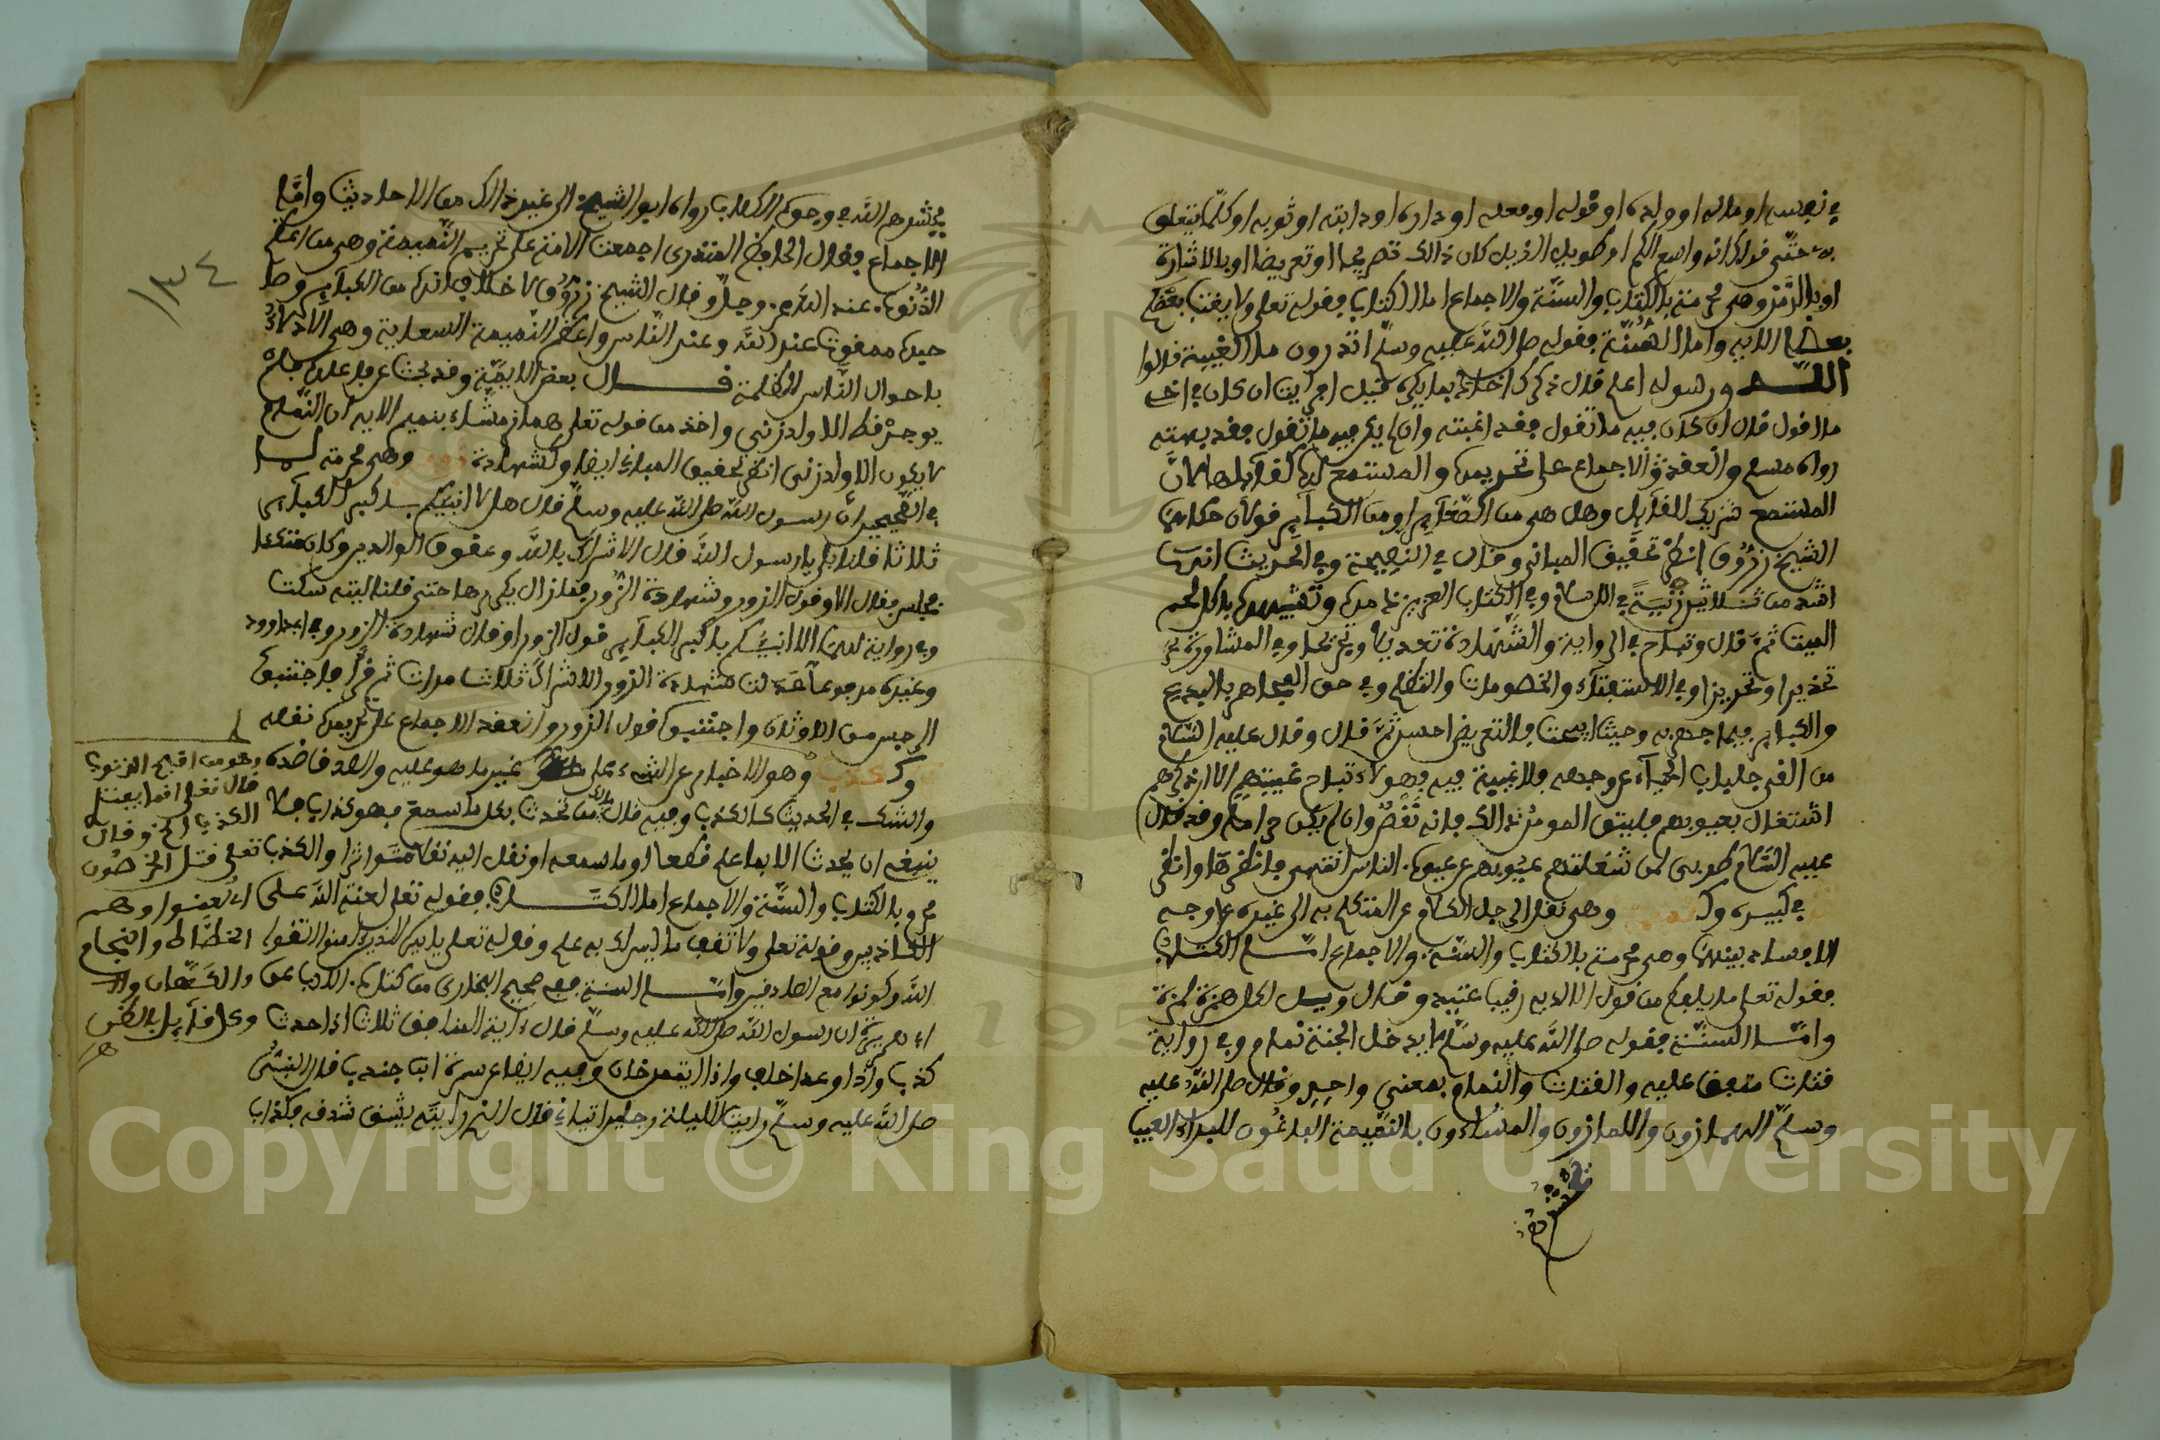 في نفسه او ماله او ولده او قوله او فعله او داره او دابته او ثوبه او كلما يتعلق
به حتى قولك انه واسع الكم او طويل الذيل كان ذالك تصريحا او تعريضا او بالاشارة
او بالرمز وهي محرمة بالكتاب والسنة والاجماع اما الكتاب فقوله تعلى ولا يغتب بعضكم
بعضا الاية واما السنة فقوله صلى الله عليه وسلم اتدرون ما الغيبة قالوا
الله ورسوله اعلم قال ذكرك اخاك بما يكره قيل افرايت ان كان في اخي
ما اقول قال ان كان فيه ما تقول فقد اغتبته وان لم يكن فيه ما تقول فقد بهته
رواه مسلم وانعقد الاجماع على تحريمها والمستمع لها كقايلها لان
المستمع شريك القايل وهل هي من الصغاير او من الكباير قولان حكاهما
الشيخ زروق انظر تحقيق المباني وقال في النصيحة وفي الحديث انها
اشد من ثلاثين زنية في الاسلام وفي الكتاب العزيز ذمها وتشبيهها باكل لحم
الميت ثم قال وتباح في الرواية والشهادة تعديلا وتجريحا وفي المشاورة
تحذيرا وفي الاستفتاء والخصومات والتظلم وفي حق المجاهر بالبدع
والكباير فيما جهر به وحيث ابيحت فالتعريض احسن ثم قال وقال عليه السلام
من القى جلباب الحياء عن وجهه فلا غيبة فيه فهولاء تباح غيبتهم الا ان ذكرهم
اشتغال بعيوبهم فليتق المومن ذالك فانه نقص وان لم يكن حراما وقد قال
عليه السلام طوبى لمن شغلته عيوبه عن عيوب الناس انتهى فانظرها وانظر
في كبيره و وهي نقل الرجل الكلام عن المتكلم به الى غيره على وجه
الافساد بينهما وهي محرمة بالكتاب والسنة والاجماع اما الكتاب
فقوله تعلى ما يلفظ من قول الا لديه رقيب عتيد وقال ويل لكل همزة لمزة
واما السنة فقوله صلى الله عليه وسلم لا يدخل الجنة نمام وفي رواية
قتات متفق عليه والقتات والنمام بمعنى واحد وقال صلى الله عليه
وسلم الهمازون واللمازون والمشاءون بالنميمة الباغون للبراء العيب
يحشرهم الله في وجوه الكلاب رواه ابو الشيخ الى غير ذالك من الاحاديث واما
الاجماع فقال الحافظ المنذري اجمعت الامة على تحريم النميمة وهي من اعظم
الذنوب عند الله عز وجل وقال الشيخ زروق لا خلاف انها من الكباير
ممقوت عند الله وعند الناس واعظم النميمة السعاية وهي الادلاء
باحوال الناس للظلمة قال بعض الايمة وقد بحث عن فاعلها فلم
يوجد قط الا ولد زنى واخذ من قوله تعلى هماز مشاء بنميم الاية ان النمام
لا يكون الا ولد زنى انظر تحقيق المباني ايضا وكشهادة زور وهي محرمة لما
في الصحيحين ان رسول الله صلى الله عليه وسلم قال هل لا انبيكم باكبر الكباير
ثلاثا قلنا بلى يا رسول الله قال الاشراك بالله وعقوق الوالدين وكان متكئا
فجلس فقال الا وقول الزور وشهادة الزور فما زال يكررها حتى قلنا ليته سكت
وفي رواية لهما الا انبيكم باكبر الكباير قول الزور او قال شهادة الزور وفي ابي داوود
وغيره مرفوعا عدلت شهادة الزور الاشراك ثلاثا مرات ثم قرأ فاجتنبوا
الرجس من الاوثان واجتنبوا قول الزور وانعقد الاجماع على تحريمها نقله
و كذب وهو الاخبار عن الشيء على غير ما هو عليه والصدق ضده
والشك في الحديث كالكذب وفيه قال من تحدث بكل ما سمع فهو كذاب فلا
ينبغي ان يحدث الا بما علم قطعا او ما سمعه او نقل اليه نقلا متواترا والكذب
محرم بالكتاب والسنة والاجماع اما الكتاب فقوله تعلى لعنة الله على
الكاذبين وقوله تعلى ولا تقف ما ليس لك به علم وقوله تعلى يايها الذين امنوا اتقوا
الله وكونوا مع الصادقين واما السنة ففي صحيح البخاري من كتاب الادب عن
ابي هريرة ان رسول الله صلى الله عليه وسلم قال ءاية المنافق ثلاث اذا حدث
كذب واذا وعد اخلف واذا ايتمن خان وفيه ايضا عن سمرة ابن جندب قال النبي
صلى الله عليه وسلم رايت الليلة رجلين اتياني قال الذي رايته يشق شدقه فكذاب
وهو من اقبح الذنوب
قال تعلى انما يفتر
الكذب الخ وقال
تعلى قتل الخرصون
اي لعنوا وهم
الخطاط والنجام
والكهان
وكل قايل بالظن
يحشرهم
١٣٤